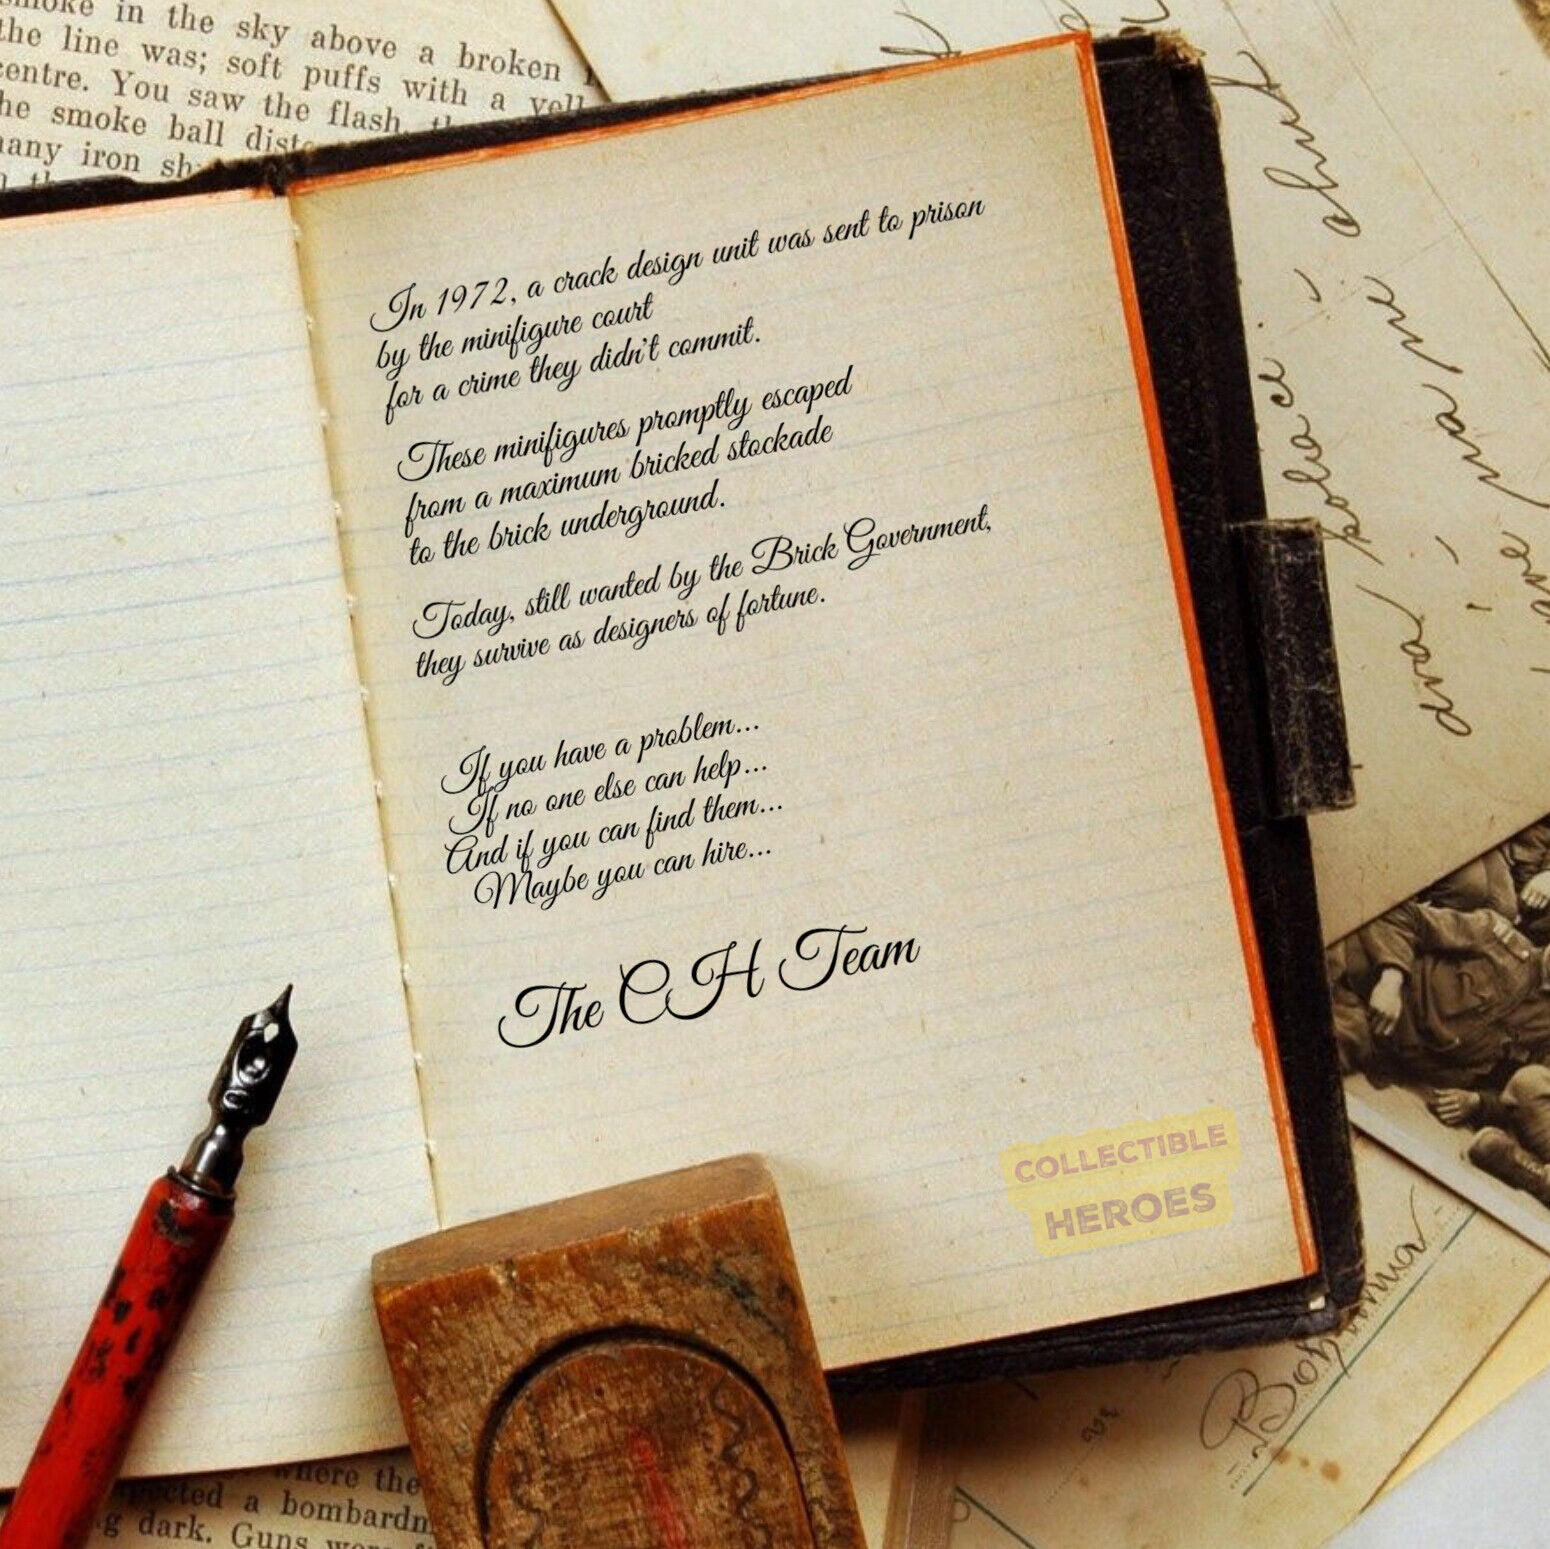 smoke in the sky above a broken
the line was; soft puffs with a yell
centre. You saw the flash,
the smoke ball dist
many iron sh
In 1972, a crack design unit was sent to prison
by the minifigure court
for a crime they didn't commit.
These minifigures promptly escaped
from a maximum bricked stockade
to the brick underground.
Today, still wanted by the Brick Government,
they survive as designers of fortune.
If you have a problem...
If no one else can help...
And if you can find them...
Maybe you can hire...
The CH Team
COLLECTIBLE
HEROES
where the
a bombardm
dark. Guns were